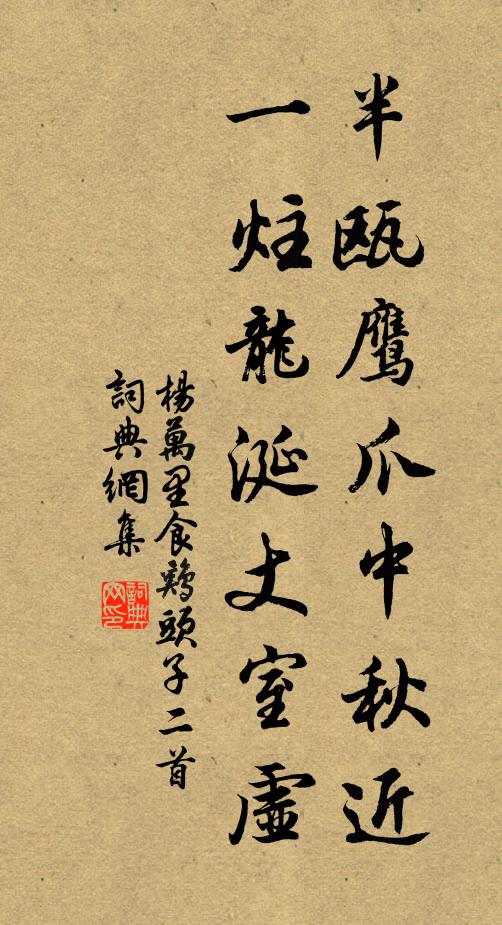 半甌鷹爪中秋近
一炷龍涎丈室虛
楊萬里食鷄頭子二首
詞典網集
詞典
网印